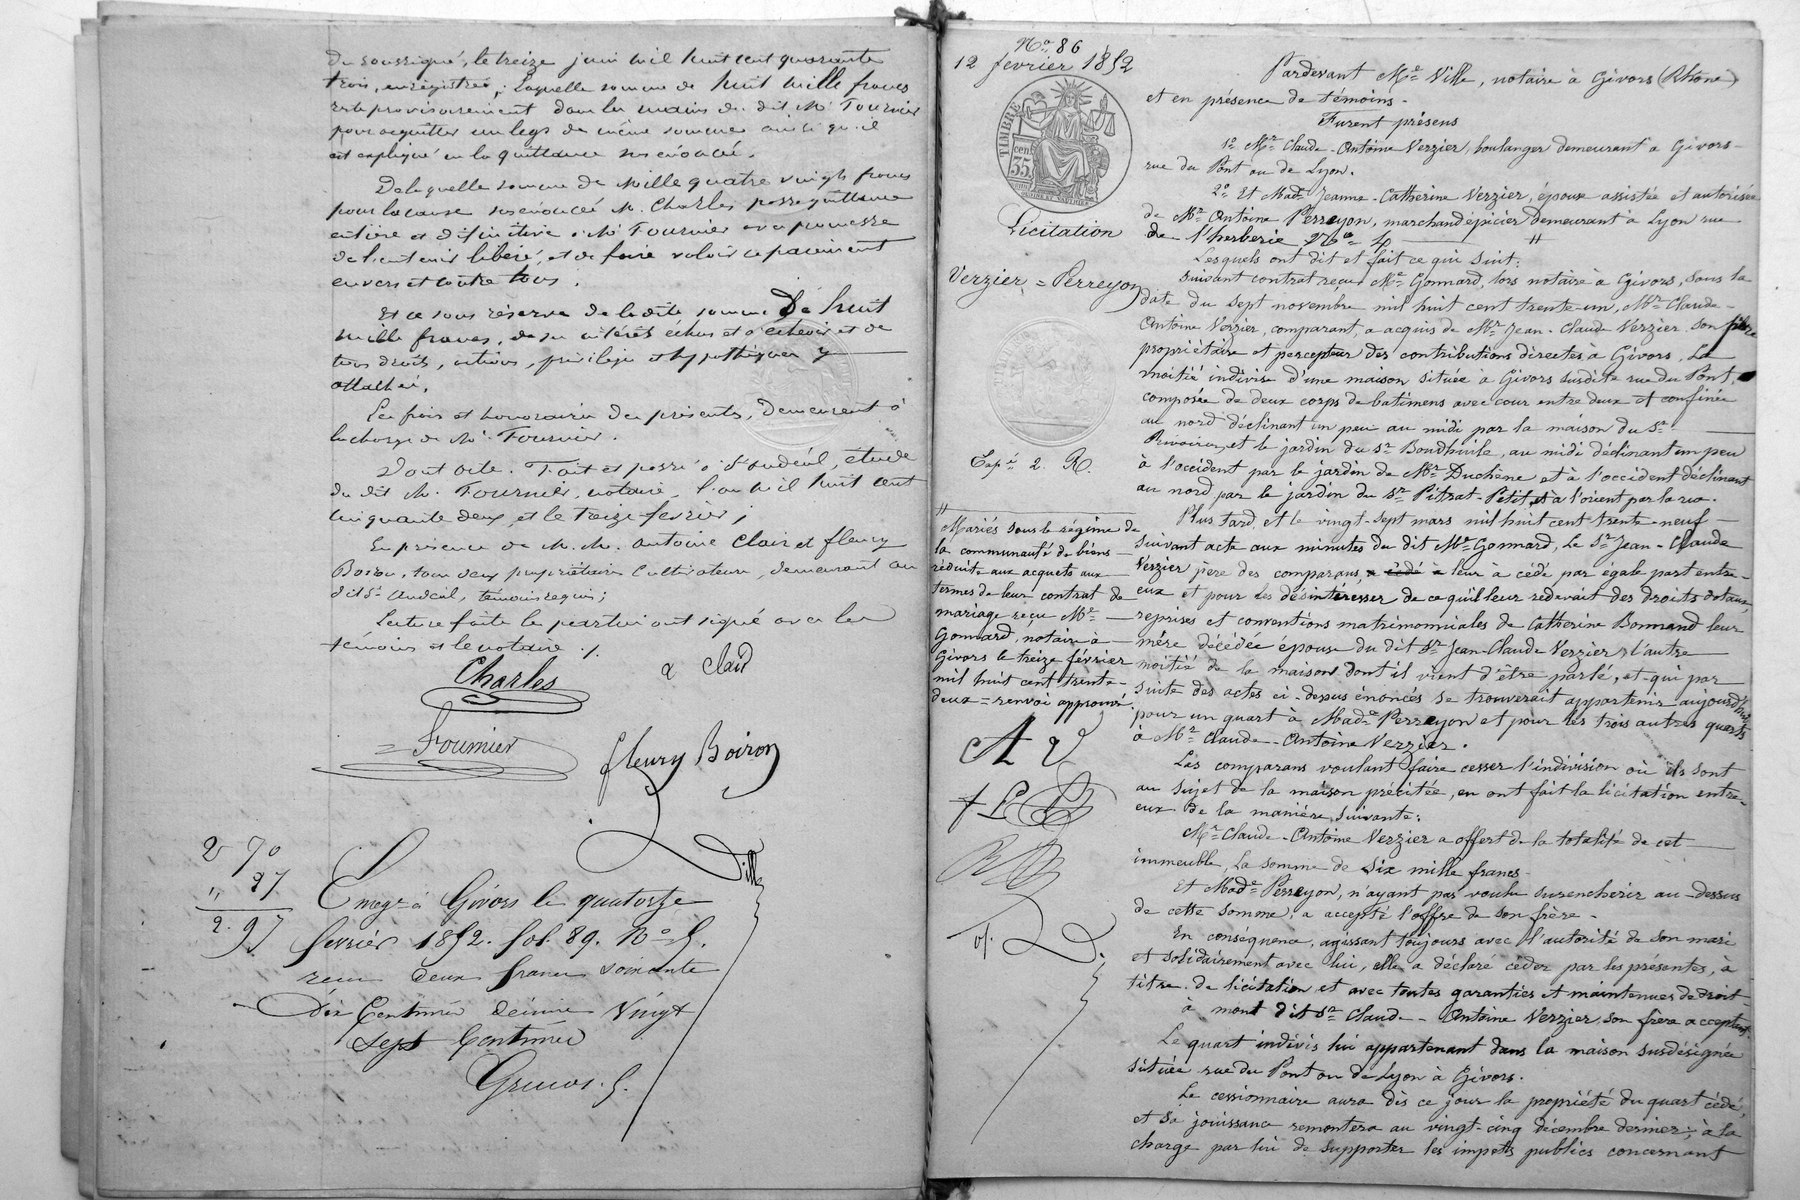 du soussigné, le treize juin mil huit cent quarante
trois, enregistrée; laquelle somme de huit mille francs
reste provisoirement dans les mains du dit Me Fournier
pour acquitter un legs de même somme ainsi qu'il
est expliqué en la quittance susénoncée.
De laquelle somme de mille quatre vingts francs
pour la cause susénoncée M. Charles passe quittance
entière et définitive à Me Fournier avec promesse
de l'en tenir libéré, et de faire valoir ce paiement
envers et contre tous.
Et ce sous réserve de ladite somme de huit
mille francs, de ses intérêts échus et à échoir et de
tous droits, actions, privilège et hypothèques y
attachés.
Les frais et honoraires des présentes, demeurent à
la charge de Me Fournier.
Dont acte. Fait et passé à St Andéol, étude
du dit Me Fournier, notaire, l'an mil huit cent
cinquante deux et le treize fevrier;
En présence de M.M. Antoine Clair et fleury
Boiron, tous deux propriétaires cultivateurs, demeurant au
dit St Andéol, témoins requis;
Lecture faite les parties ont signé avec les
témoins et le notaire ./.
Charles
a Clair
Fournier
fleury Boiron
Ville
2 70
" 27
2.97
Enregé à Givors le quatorze
fevrier 1852. fol. 89. No 5.
reçu deux francs soixante
Dix Centimes décime Vingt
Sept Centimes
No 86
12 fevrier 1852
TIMBRE
35 cen
Licitation
Verzier = Perreyon
Expé 2. R.
"
Mariés sous le régime de
la communauté de biens
réduite aux acquets aux
termes de leur contrat de
mariage reçu Me
Gonnard, notaire à
Givors le treize février
mil huit cent trente-
deux = renvoi approuvé
A V
Pardevant Me Ville, notaire à Givors (Rhône)
et en présence de témoins.
Furent présens
1o Mr Claude-Antoine Verzier, boulanger demeurant à Givors
rue du Pont ou de Lyon.
2o Et Made Jeanne-Catherine Verzier, épouse assistée et autorisée
de Mr Antoine Perreyon, marchand épicier demeurant à Lyon rue
de l'herberie No 4 "
Lesquels ont dit et fait ce qui suit:
Suivant contrat reçu Me Gonnard, lors notaire à Givors, sous la
date du sept novembre mil huit cent trente-un, Mr Claude-
Antoine Verzier, comparant, a acquis de Mr Jean-Claude Verzier son père
propriétaire et percepteur des contributions directes à Givors, La
moitié indivise d'une maison située à Givors susdite rue du Pont,
composée de deux corps de batimens avec cour entre deux et confinée
au nord déclinant un peu au midi par la maison du Sr
Rivoire, et le jardin du Sr Boudhuile, au midi déclinant un peu
à l'occident par le jardin de Mr Duchêne et à l'occident déclinant
au nord par le jardin du Sr Pitrat-Petit, et à l'orient par la rue.
Plus tard, et le vingt-sept mars mil huit cent trente-neuf
suivant acte aux minutes du dit Me Gonnard, le Sr Jean-Claude
Verzier père des comparans, a cédé à leur à cédé par égale part entre
eux et pour les désintéresser de ce qu'il leur redevait des droits dotaux
reprises et conventions matrimoniales de Catherine Bonnand leur
mère décédée épouse du dit Sr Jean-Claude Verzier, l'autre
moitié de la maison dont il vient d'être parlé, et qui par
suite des actes ci-dessus énoncés se trouverait appartenir aujourd'hui
pour un quart à Made Perreyon et pour les trois autres quarts
à Mr Claude-Antoine Verzier.
Les comparans voulant faire cesser l'indivision où ils sont
au sujet de la maison précitée, en ont fait la licitation entre
eux de la manière suivante:
Mr Claude-Antoine Verzier a offert de la totalité de cet
immeuble, la somme de six mille francs.
Et Made Perreyon, n'ayant pas voulu surencherir au-dessus
de cette somme, a accepté l'offre de son frère.
En conséquence, agissant toujours avec l'autorité de son mari
et solidairement avec lui, elle a déclaré céder par les présentes, à
titre de licitation et avec toutes garanties et maintenues de droit
à mon dit Sr Claude-Antoine Verzier, son frère acceptant.
Le quart indivis lui appartenant dans la maison susdésignée
située rue du Pont ou de Lyon à Givors.
Le cessionnaire aura dès ce jour la propriété du quart cédé,
et sa jouissance remontera au vingt-cinq décembre dernier; à la
charge par lui de supporter les impôts publics concernant